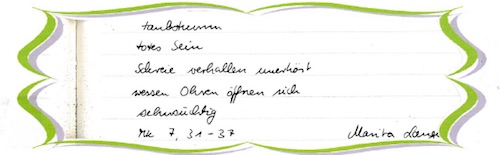 taubstumm
totes Sein
Schreie verhallen unerhört
wessen Ohren öffnen sich
sehnsüchtig
Mk 7, 31-37 Marita